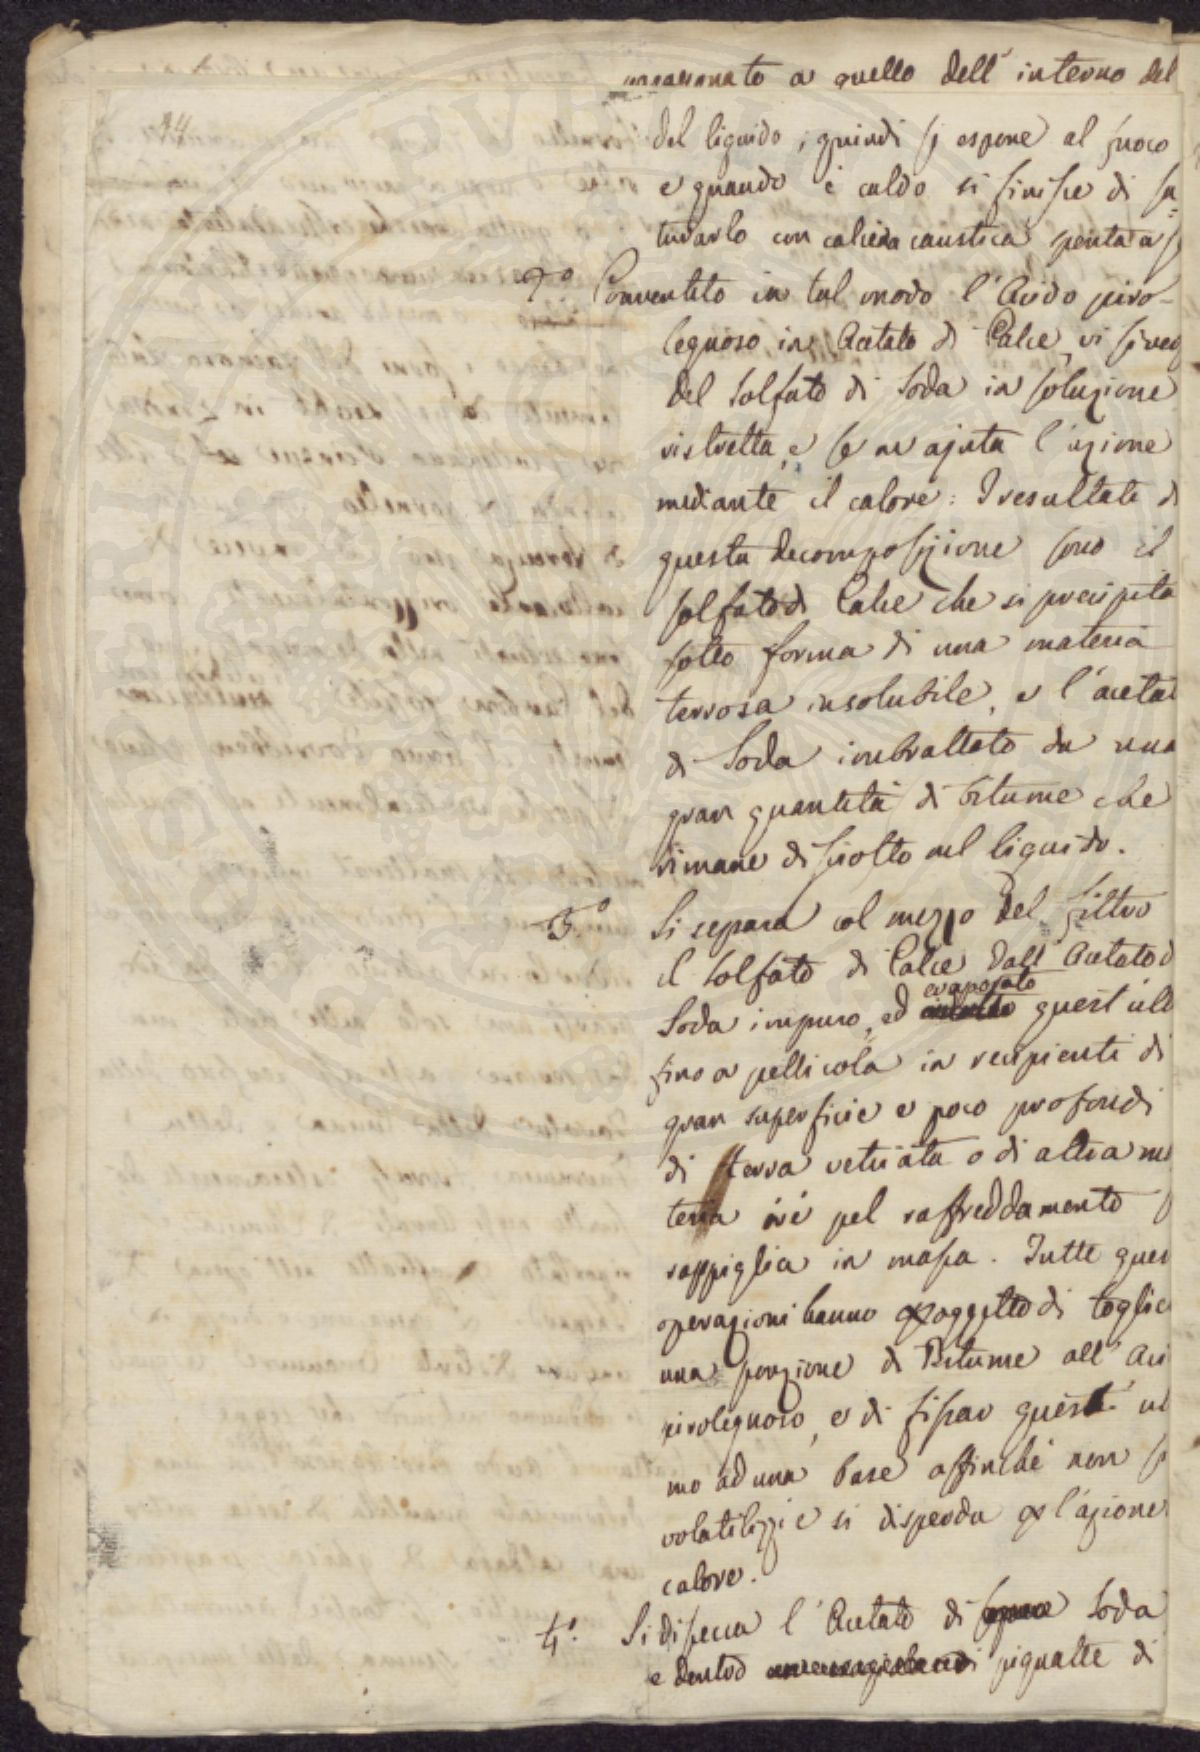 a quello dell' interno del
34
del liquido; quindi si espone al fuoco
e quando è caldo si finisce di sa=
turarlo con calcina caustica spenta a
2.° Convertito in tal modo l'Acido piro-
legnoso in Acetato di Calce, vi si
del Solfato di Soda in soluzione
ristretta, e se ne ajuta l'azione
mediante il calore: I resultati di
questa decomposizione sono il
solfato di Calce che si precipita
sotto forma di una materia
terrosa insolubile, e l'aceta
di Soda imbrattato da una
gran quantità di bitume che
rimane disciolto nel liquido.
3.° Si separa col mezzo del filtro
il Solfato di Calce dall' Acetato d
evaporato
Soda impuro, ed quest' ult
fino a pellicola in recipienti di
gran superficie e poco profondi
di terra vetriata o di altra ma
teria ivi pel raffreddamento s
rappiglia in massa. Tutte ques
operazioni hanno p oggetto di toglie
una porzione di Bitume all' Aci
pirolegnoso, e di fissar quest' ul
mo ad una base affinchè non si
volatilizzi e si disperda p l'azione
calore.
4.° Si dissecca l'Acetato di Soda
e dentro pignatte di